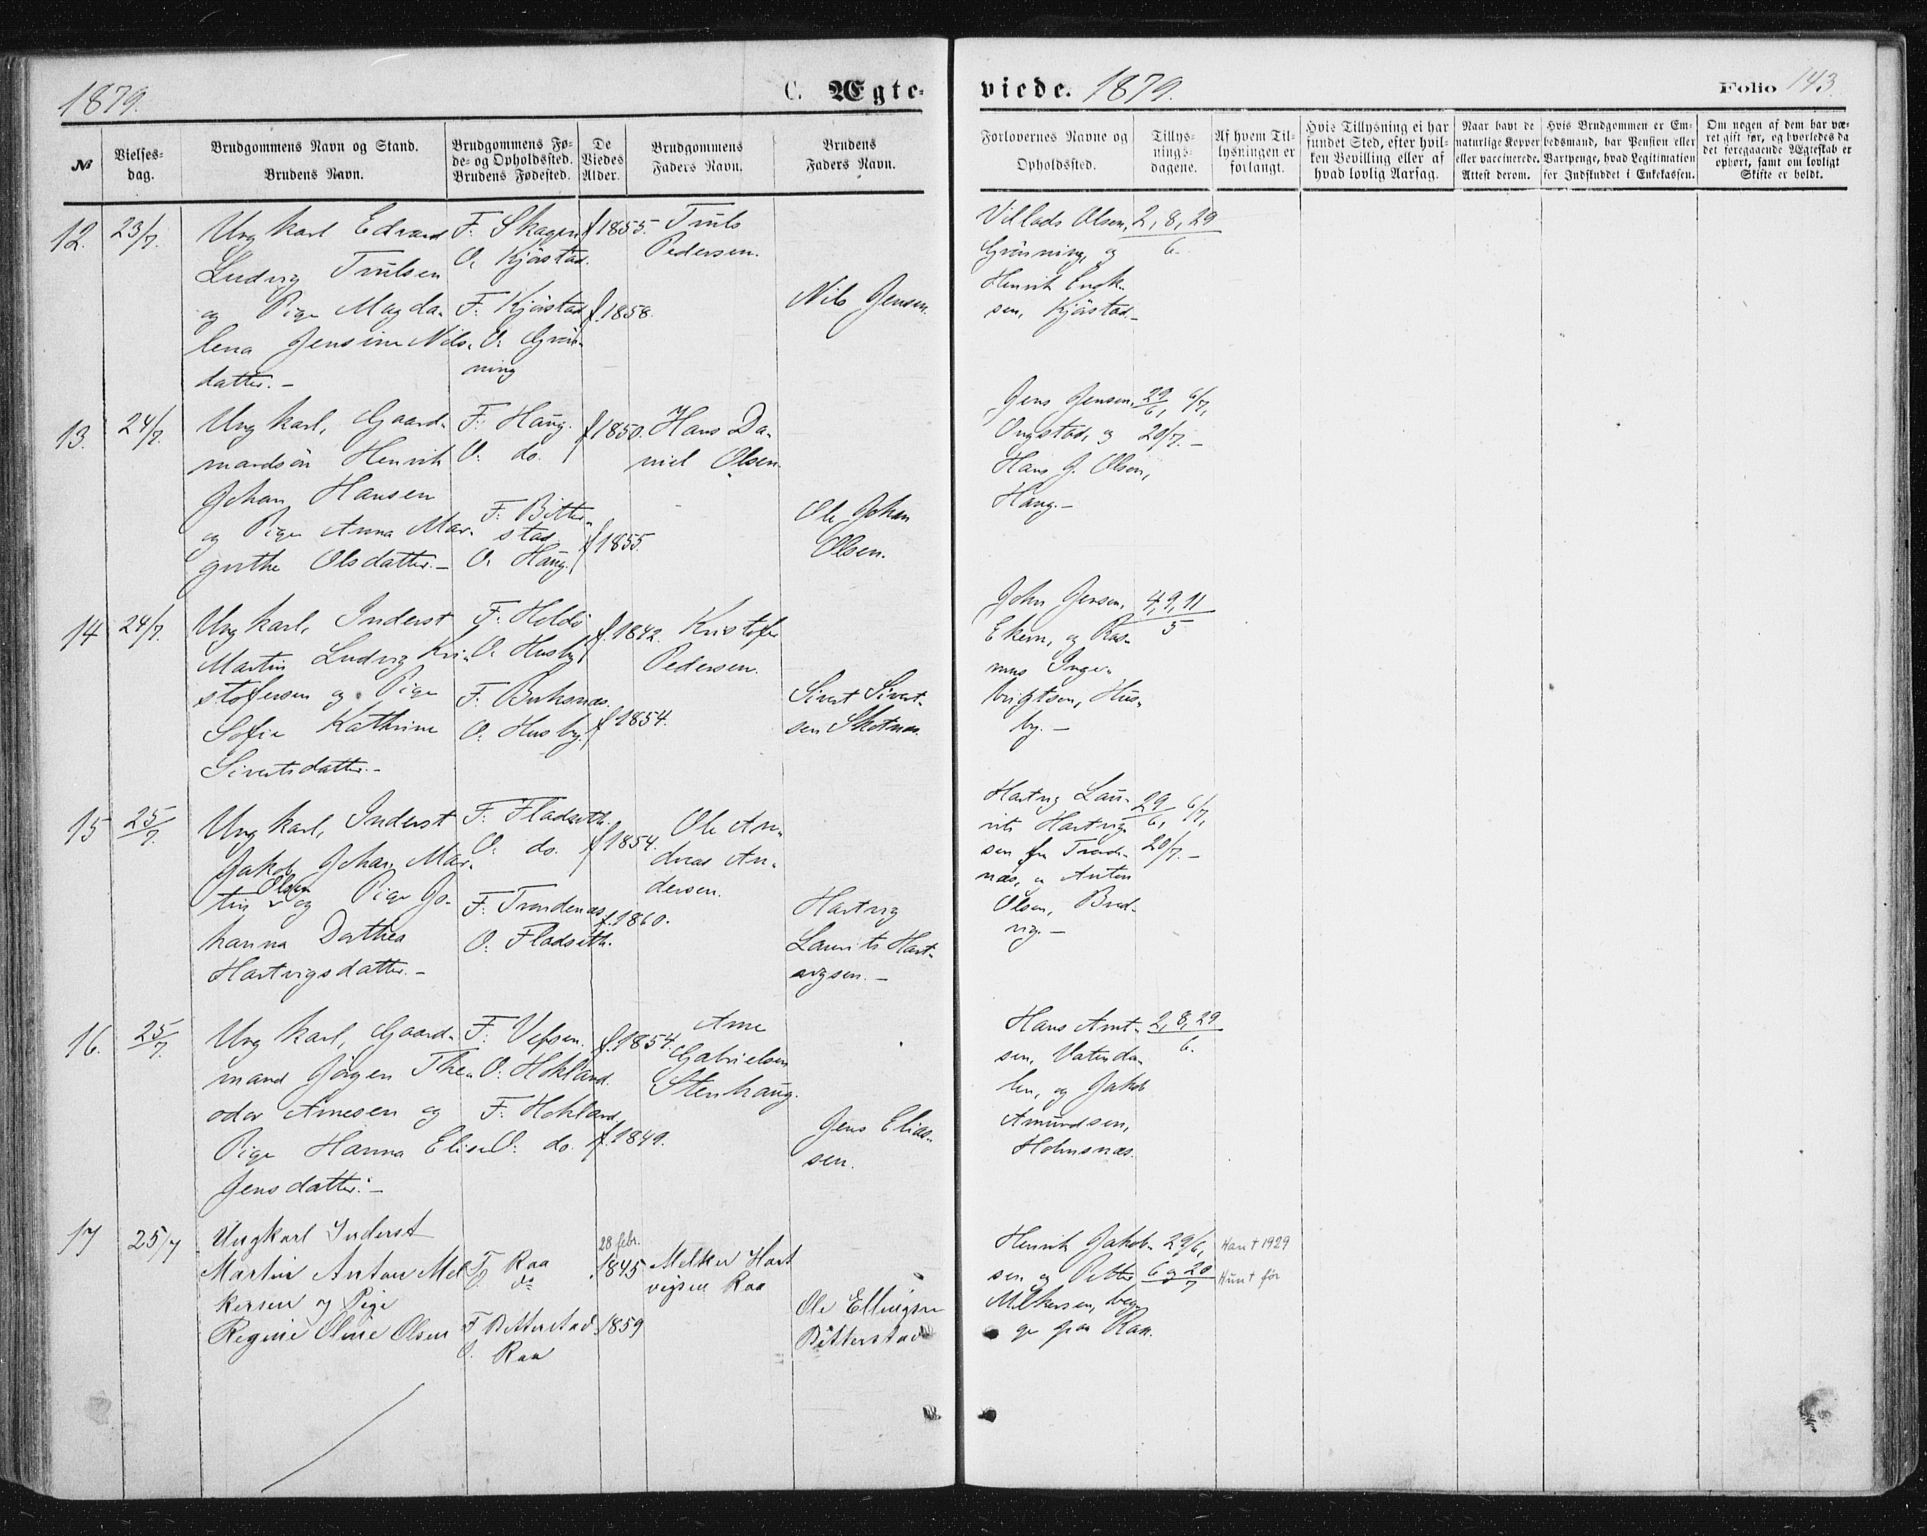 1879.
C. Ægte-
viede. 1879.
Folio 143.
№
Vielses-
dag.
Brudgommens Navn og Stand.
Brudens Navn.
Brudgommens Fø-
de- og Opholdssted.
Brudens Fødested.
De
Viedes
Alder.
Brudgommens
Faders Navn.
Brudens
Faders Navn.
Forlovernes Navne og
Opholdssted.
Tillys-
nings-
dagene.
Af hvem Til-
lysningen er
forlangt.
Hvis Tillysning ei har
fundet Sted, efter hvil-
ken Bevilling eller af
hvad lovlig Aarsag.
Naar havt de
naturlige Kopper
eller vaccinerede.
Attest derom.
Hvis Brudgommen er Em-
bedsmand, har Pension eller
Vartpenge, hvad Legitimation
for Indskuddet i Enkekassen.
Om nogen af dem har væ-
ret gift før, og hvorledes da
det foregaaende Ægteskab er
ophørt, samt om lovligt
Skifte er holdt.
12. 23/7.
Ungkarl Edvard
Ludvig Trulsen
og Pige Magda-
lena Jensine Nils-
datter. -
F. Skagen
O. Kjørstad.
F. Kjørstad
O. Grön-
ning
f 1855.
f. 1858.
Truls
Pedersen.
Nils Jensen.
Villads Olsen,
Grönning, og
Henrik
sen, Kjørstad. -
2, 8, 29
6.
13. 24/7.
Ungkarl, Gaard-
mandsön Henrik
Johan Hansen
og Pige Anna Mar-
grethe Olsdatter. -
F. Haug.
O. do.
F. Bitter-
stad
O. Haug.
f 1850.
f 1855.
Hans Da-
niel Olsen.
Ole Johan
Olsen.
Jens Jensen,
Ongstad, og
Hans J. Olsen,
Haug. -
29/6, 6/7,
20/7. -
14 24/7.
Ungkarl, Inderst
Martin Ludvig Kri-
stofersen og Pige
Sofie Kathrine
Sivertsdatter. -
F. Holdö
O. Husby
F. Buksnæs.
O. Husby.
f. 1842.
f. 1854.
Kristofer
Pedersen.
Sivert Sivert-
sen Skotnæs.
John Jensen,
Ekern, og Ras-
mus Inge-
brigtsen, Hus-
by. -
4, 9, 11
5
15 25/7.
Ungkarl, Inderst
Jakob Johan Mar-
tin Olsen og Pige Jo-
hanna Dorthea
Hartvigsdatter. -
F. Fladseth.
O. do.
F. Trondenæs
O. Fladseth.
f 1854.
f. 1860.
Ole An-
dreas An-
dersen.
Hartvig
Laurits Hart-
vigsen. -
Hartvig Lau-
rits Hartvig-
sen fra Tronde-
næs, og Anton
Olsen, Bred-
vig. -
29/6, 6/7,
20/7. -
16. 25/7.
Ungkarl, Gaard-
mand Jörgen The-
odor Arnesen og
Pige Hanna Elise
Jensdatter. -
F. Vefsen.
O. Hokland.
F. Hokland,
O. do.
f. 1854.
f. 1849.
Arne
Gabrielsen
Stenhaug.
Jens Elias-
sen.
Hans Arnt-
sen, Vatnda-
len, og Jakob
Amundsen,
Holmsnæs.
2, 8, 29
6.
17 25/7
Ungkarl Inderst
Martin Anton Mel
kersen og Pige
Regine Oline Olsen
F. Raa
O. do
F Bitterstad
O. Raa
28 febr.
1845
1859
Melker Hart
vigsen Raa
Ole Ellingsen
Bitterstad
Henrik Jakob-
sen og Petter
Melkersen, beg-
ge paa Raa.
29/6,
6 og 20
7
Han † 1929
Hun † før